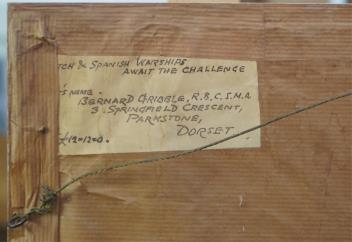 TCH & SPANISH WARSHIPS
AWAIT THE CHALLENGE
'S NAME.
BERNARD GRIBBLE, R.B.C, S.M.A.
3. SPRINGFIELD CRESCENT,
PARKSTONE,
DORSET.
£12=12=0.